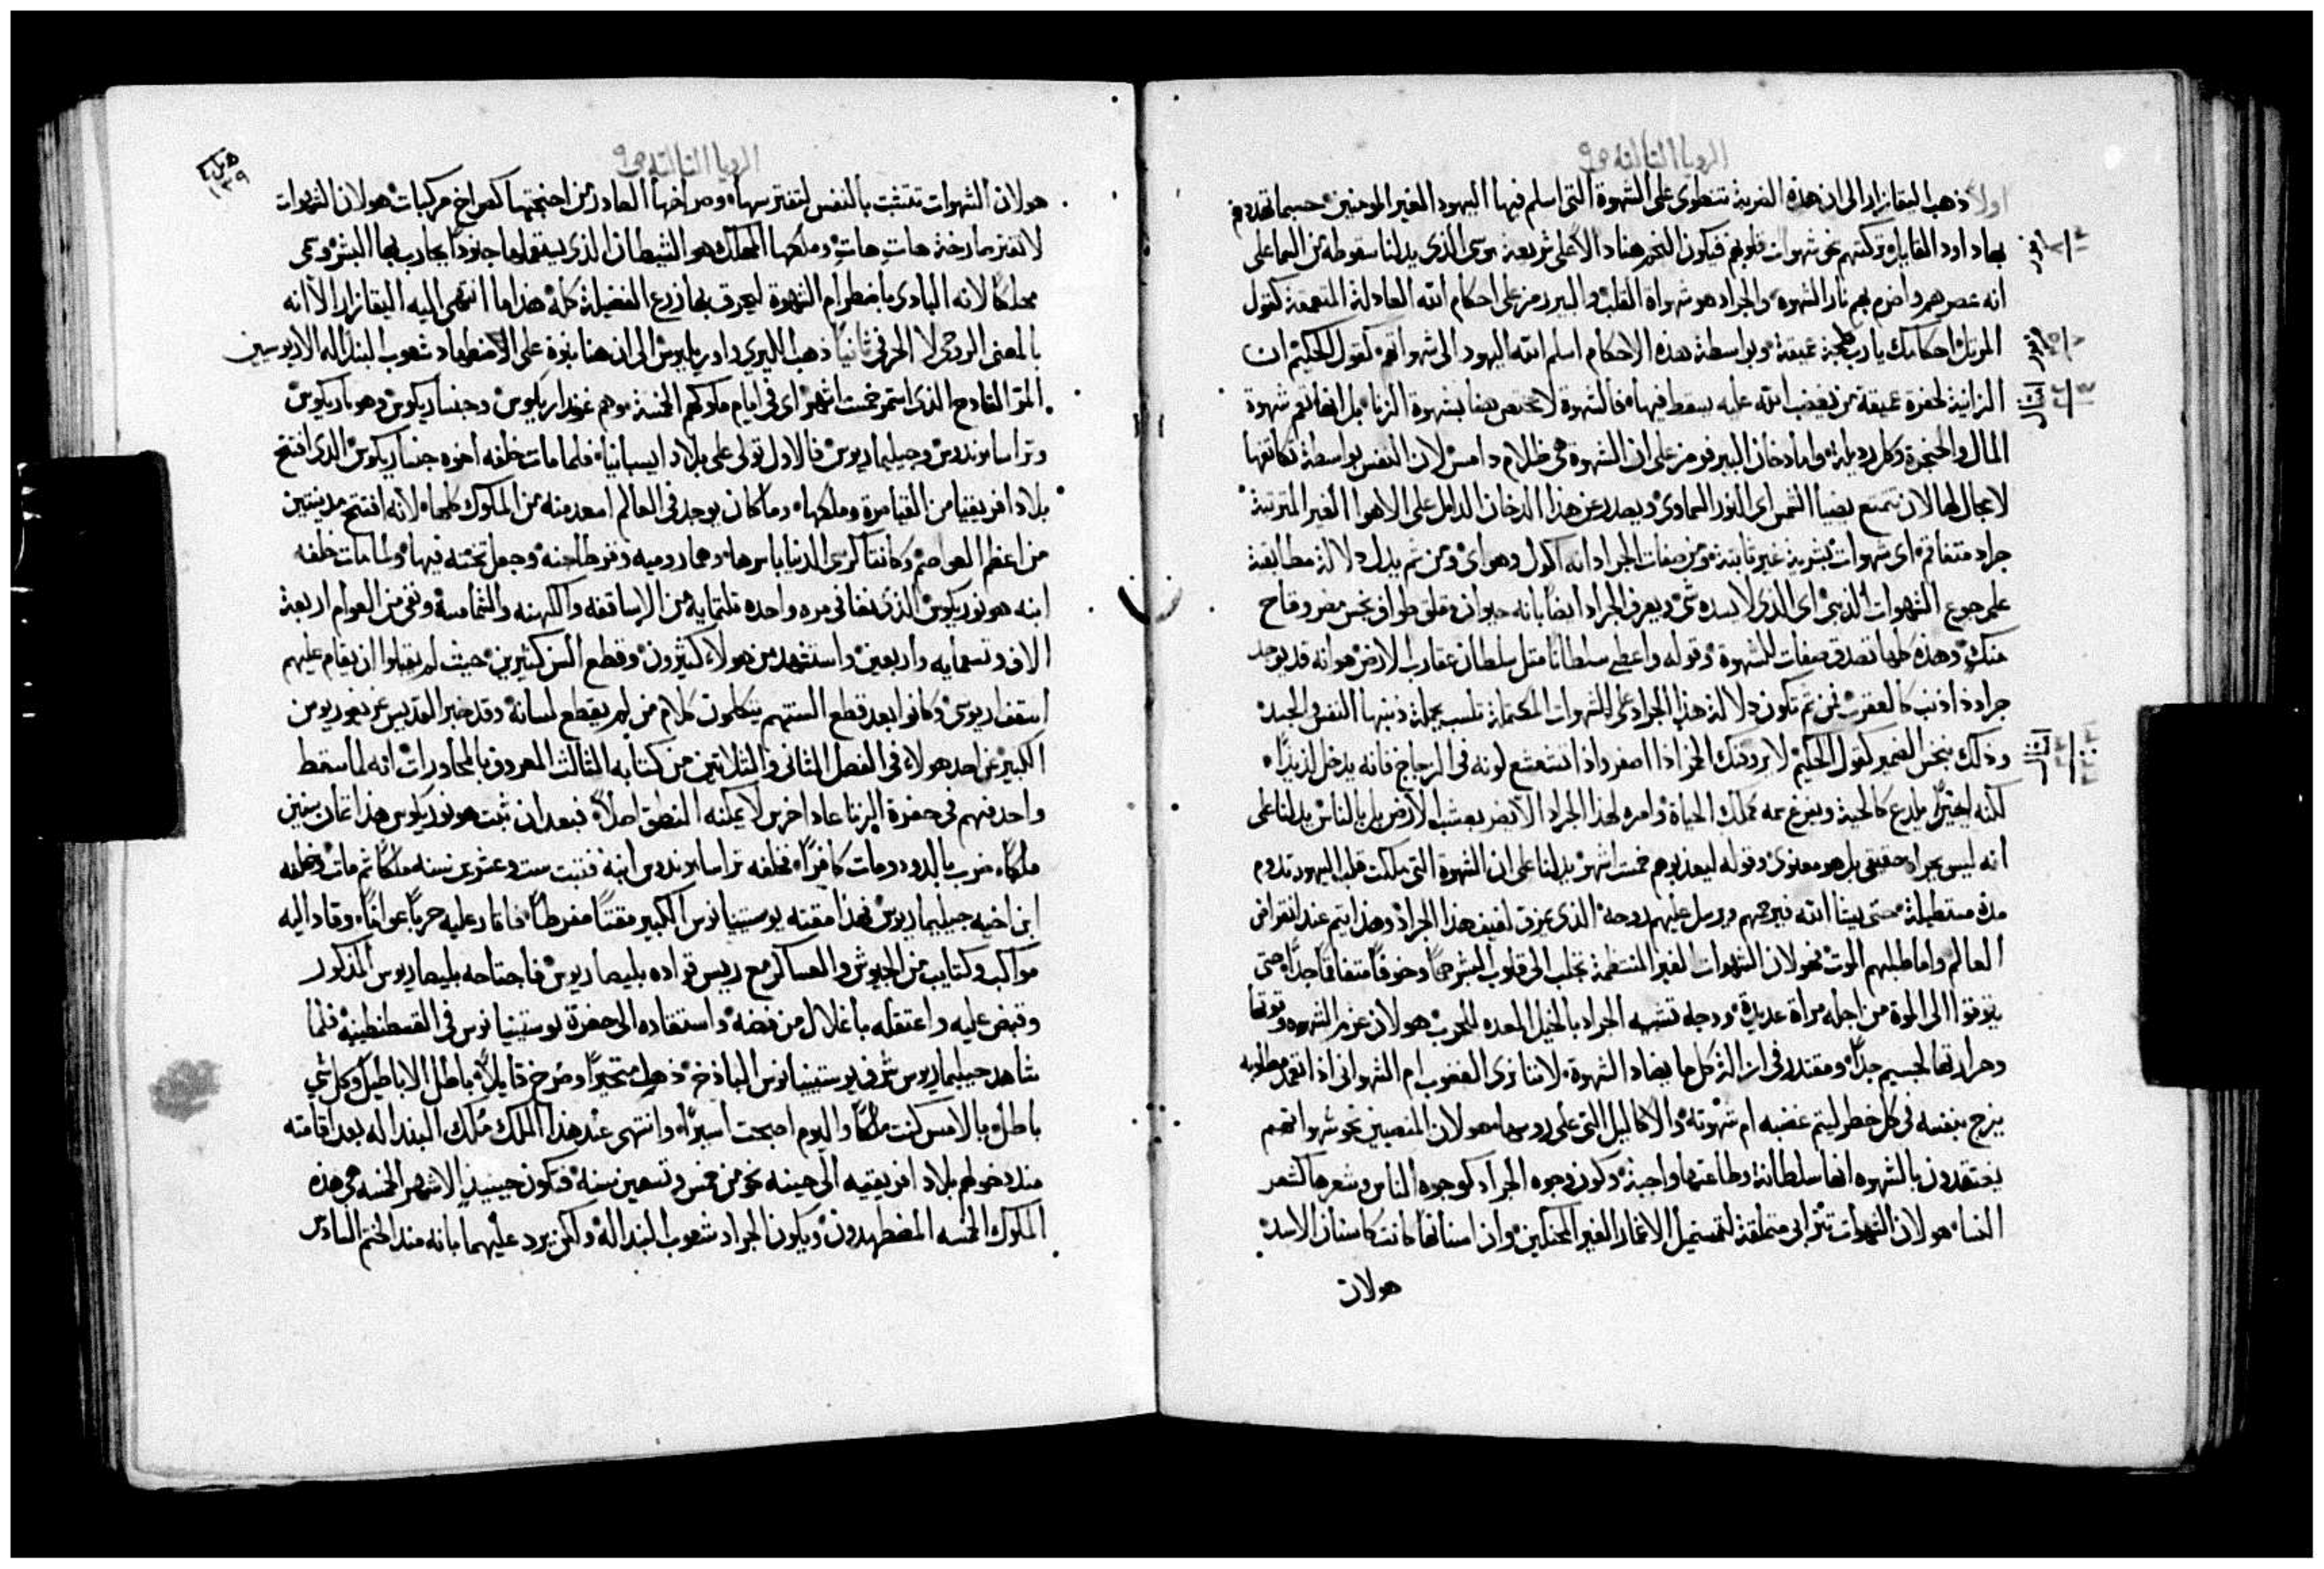 الرويا الثالثة ص ٩
اولاً ذهب اليقازار الى ان هذه الضربة تنطوى على الشهوة التى اسلم فيها اليهود الغير المومنين حسبما تهددهم
بها داود القايل وتركتهم نحو شهوات قلوبهم فيكون النجم هنا دالاً على شريعة موسى الذى يدلنا سقوطه من السما على
انه عصرهم واضرم بهم نار الشهوة والجراد هو شهواة القلب والبير رمز على احكام الله العادلة المتعمقة كقول
المرتل احكامك يارب لجة عميقة وبواسطة هذه الاحكام اسلم الله اليهود الى شهواتهم كقول الحكيم ان
الزانية لحفرة عميقة من يغضب الله عليه يسقط فيها فالشهوة لا تختص هنا بشهوة الزنا بل انها تعم شهوة
المال والحنجرة وكل رذيلة واما دخان البير فرمز على ان الشهوة هى ظلام دامس لان النفس بواسطة تكاثفها
لا مجال لها لان تتمتع بضيا الشمس اى النور السماوى ويصدر عن هذا الدخان الدال على الاهوا الغير المترتبة
جراد متفاقم اى شهوات بشرية غير ثابتة ومن صفات الجراد انه اكول وهواى ومن ثم يدل دلالة مطابقة
على جوع الشهوات الذى لا يسده شى ويعرف الجراد ايضاً بانه حيوان قلق طواف نجس مضر وقاح
منك وهذه كلها تصدق صفات للشهوة وقوله واعطى سلطانا مثل سلطان عقارب الارض هو انه قد يوجد
جراد ذا ذنب كالعقرب فمن ثم تكون دلالة هذا الجراد على الشهوات المكتملة تلسب بحملة ذنبها النفس والجسد
وذلك بنخس الضمير كقول الحكيم لا يروقنك الخمر اذا اصفر واذا تشعشع لونه فى الزجاج فانه يدخل لذيذاً
لكنه اخيراً يلدغ كالحية ويفرغ سمه مملك الحياة وامره لهذا الجراد الا يضر بعشب الارض بل بالناس يدلنا على
انه ليس بجراد حقيقى بل هو معنوى وقوله ليعذبوهم خمسة اشهر يدلنا على ان الشهوة التى ملكت قلب اليهود تدوم
مدة مستطيلة حتى يشا الله فيرحمهم ويرسل عليهم روحه الذى يمزق لفيف هذا الجراد وهذا يتم عند انقراض
العالم واما طلبهم الموت فهو لان الشهوات الغير المنتظمة تجلب الى قلوب البشر هماً وخوفاً متفاقماً جداً حتى
يتوقوا الى الموة من اجله مراة عديدة ووجه تشبيه الجراد بالخيل المعده للحرب هو لان عزم الشهوه وقوتها
وحرارتها لجسيم جداً ومقتدر فى ازالة كل ما يضاد الشهوة لاننا نرى الغضوب ام الشهوانى اذا تعمد مطلوبه
يزج بنفسه فى كل خطر ليتم غضبه ام شهوته والاكاليل التى على روسها هو لان المنصبين نحو شهواتهم
يعتقدون بالشهوه انها سلطانة وطاعتها واجبة وكون وجوه الجراد كوجوه الناس وشعرها كشعر
النسا هو لان الشهوات تترابى متملقة لتستميل الاغمار الغير المحنكين وان اسنانها كانت كاسنان الاسد
هو لان
مزمور
مزمور
امثال
امثال
الرويا الثالثة ص ٩
١٣٩
هو لان الشهوات تتشبث بالنفس لتفترسها وصراخها الصادر من اجنحتها كصراخ مركبات هو لان الشهوات
لا تفتر صارخة هات هات وملكها المهلك هو الشيطان الذى يستعملها جنوداً يحارب بها البشر وسمى
مهلكا لانه البادى باضطرام الشهوة ليحرق بها زرع الفضيلة كله هذا ما انتهى اليه اليقازار الا انه
بالمعنى الروحى لا الحرفى ثانياً ذهب الليرى واوريابرس الى ان هنا نبوة على الاضطهاد شعوب البندالة الاريوسيين
المتر القادح الذى استمر خمسة اشهر اى فى ايام ملوكهم الخمسة وهم غونداريكوس وجنساريكوس وهونوريكوس
وتراسا موندوس وجيليماريوس فالاول تولى على بلاد ايسبانيا فلما مات خلفه اخوه جنساريكوس الذى افتتح
بلاد افريقيا من القياصرة وملكها وما كان يوجد فى العالم اسعد منه من الملوك كلها لانه افتتح مدينتين
من اعظم العواصم وكانتا كرسى الدنيا باسرها وهما رومية وقرطاجنه وجعل تخته فيها ولما مات خلفه
ابنه هونوريكوس الذى نفا فى مره واحده ثلثمايه من الاساقفه والكهنه والشمامسة ونفى من العوام اربعة
الاف وتسعمايه واربعين واستشهد من هولاء كثيرون وقطع السن كثيرين حيث لم يقبلوا ان يقام عليهم
اسقف اريوسى وكانوا بعد قطع السنتهم يتكلمون كلام من لم يقطع لسانه وقد خبر القديس غريغوريوس
الكبير عن احد هولاء فى الفصل الثانى والثلاثين من كتابه الثالث المعروف بالمحاورات انه لما سقط
واحد منهم فى حفرة الزنا عاد اخرس لا يمكنه النطق اصلاً فبعد ان ثبت هونوريكوس هذا ثمان سنين
ملكاً ضرب بالدود ومات كافراً فخلفه تراسا موندوس ابنه فثبت ست وعشرين سنه ملكاً ثم مات وخلفه
ابن اخيه جيليماريوس فهذا مقته يوستينيانوس الكبير مقتاً مفرطاً فاثار عليه حرباً عواناً وقاد اليه
مواكب وكتايب من الجيوش والعساكر مع ريس قواده بليصاريوس فاجتاحه بليصاريوس المذكور
وقبض عليه واعتقله باغلال من فضه واستقاده الى حضرة يوستينيانوس فى القسطنطينية فلما
شاهد جيليماريوس شرف يوستينيانوس الباذخ ذهل متحيراً وصرخ قايلاً باطل الاباطيل وكل شى
باطل بالامس كنت ملكاً واليوم اصبحت اسيراً وانتهى عند هذا الملك مُلك البنداله بعد اقامته
منذ دخولهم بلاد افريقيه الى حينه نحو من خمس وتسعين سنة فتكون حينيذ الاشهر الخمسه هى هذه
الملوك الخمسه المضطهدون ويكون الجراد شعوب البنداله ولكن يرد عليهما بانه منذ الختم السادس